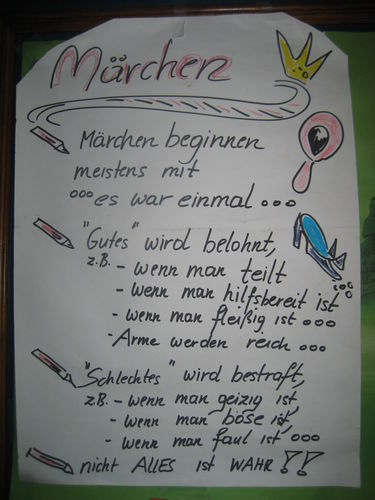 Märchen
Märchen beginnen
meistens mit
°°°es war einmal...
"Gutes" wird belohnt,
z.B. - wenn man teilt
- wenn man hilfsbereit ist
- wenn man fleißig ist ...
- Arme werden reich ...
"Schlechtes" wird bestraft,
z.B. - wenn man geizig ist,
- wenn man böse ist,
- wenn man faul ist °°°
nicht ALLES ist WAHR!!